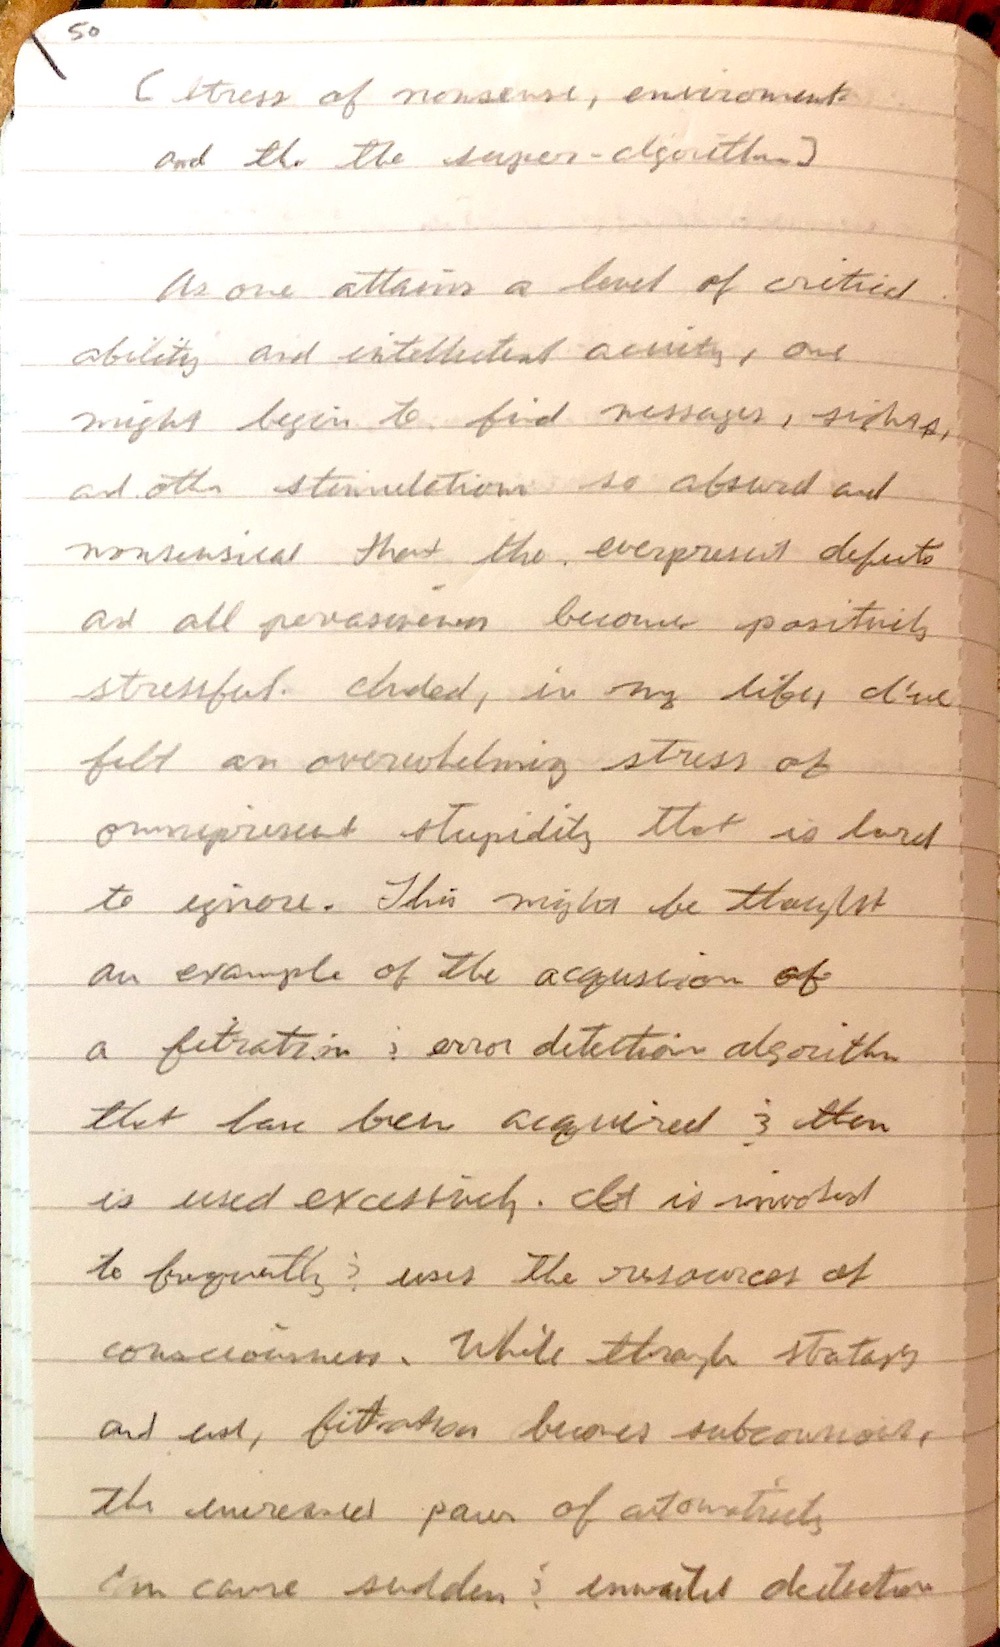 50
[ Stress of nonsense, enviroment
and the the super-algorithm]
As one attains a level of critical
ability and intellectual acuity, one
might begin to find messages, sights,
and other stimulations so absurd and
nonsensical that the everpresent defects
and all pervasiveness become positively
stressful. Indeed, in my life, I've
felt an overwhelming stress of
omnipresent stupidity that is hard
to ignore. This might be thought
an example of the acquision of
a filtration & error detection algorithm
that have been acquired & then
is used excessively. It is invoked
to frequently & uses the ressources of
consciousness. While through
and use, filtration becomes subconscious,
the increased power of automaticity
can cause sudden & unwanted detection